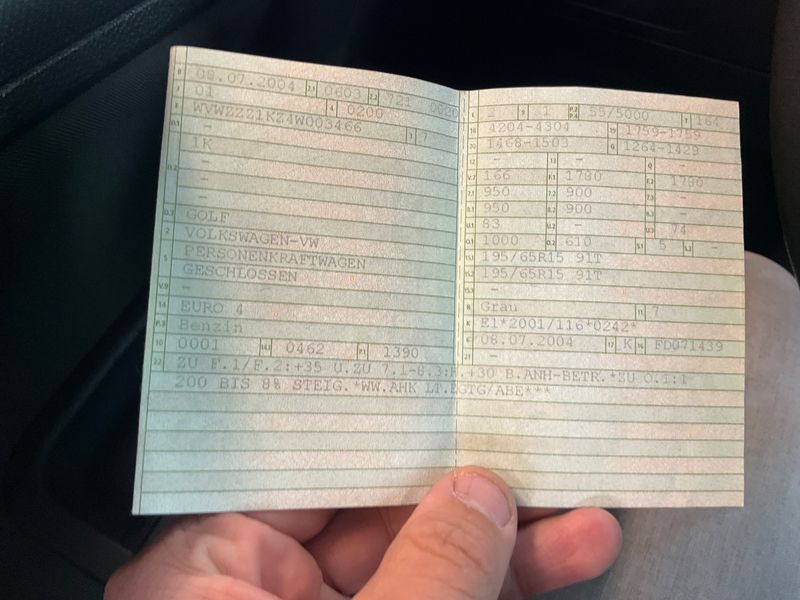 B 08.07.2004 2.1 0603 2.2 721 0620
J 01 4 0200
E WVWZZZ1KZ4W003466 3 7
D.1 -
1K
D.2 -
-
-
D.3 GOLF
2 VOLKSWAGEN-VW
5 PERSONENKRAFTWAGEN
GESCHLOSSEN
V.9 -
14 EURO 4
P.3 Benzin
10 0001 14.1 0462 P.1 1390
22 ZU F.1/F.2:+35 U.ZU 7.1-8.3:+30 B.ANH-BETR.*ZU O.1:1
200 BIS 8% STEIG.*WW.AHK LT.EGTG/ABE***
L 2 9 1 P.2 P.4 55/5000 T 164
18 4204-4304 19 1759-1759
20 1468-1503 G 1264-1429
12 - 13 - Q -
V.7 166 F.1 1780 F.2 1780
7.1 950 7.2 900 7.3 -
8.1 950 8.2 900 8.3 -
U.1 83 U.2 - U.3 74
O.1 1000 O.2 610 S.1 5 S.2 -
15.1 195/65R15 91T
15.2 195/65R15 91T
15.3 -
R Grau 11 7
K E1*2001/116*0242*
6 08.07.2004 17 K 16 FD071439
21 -